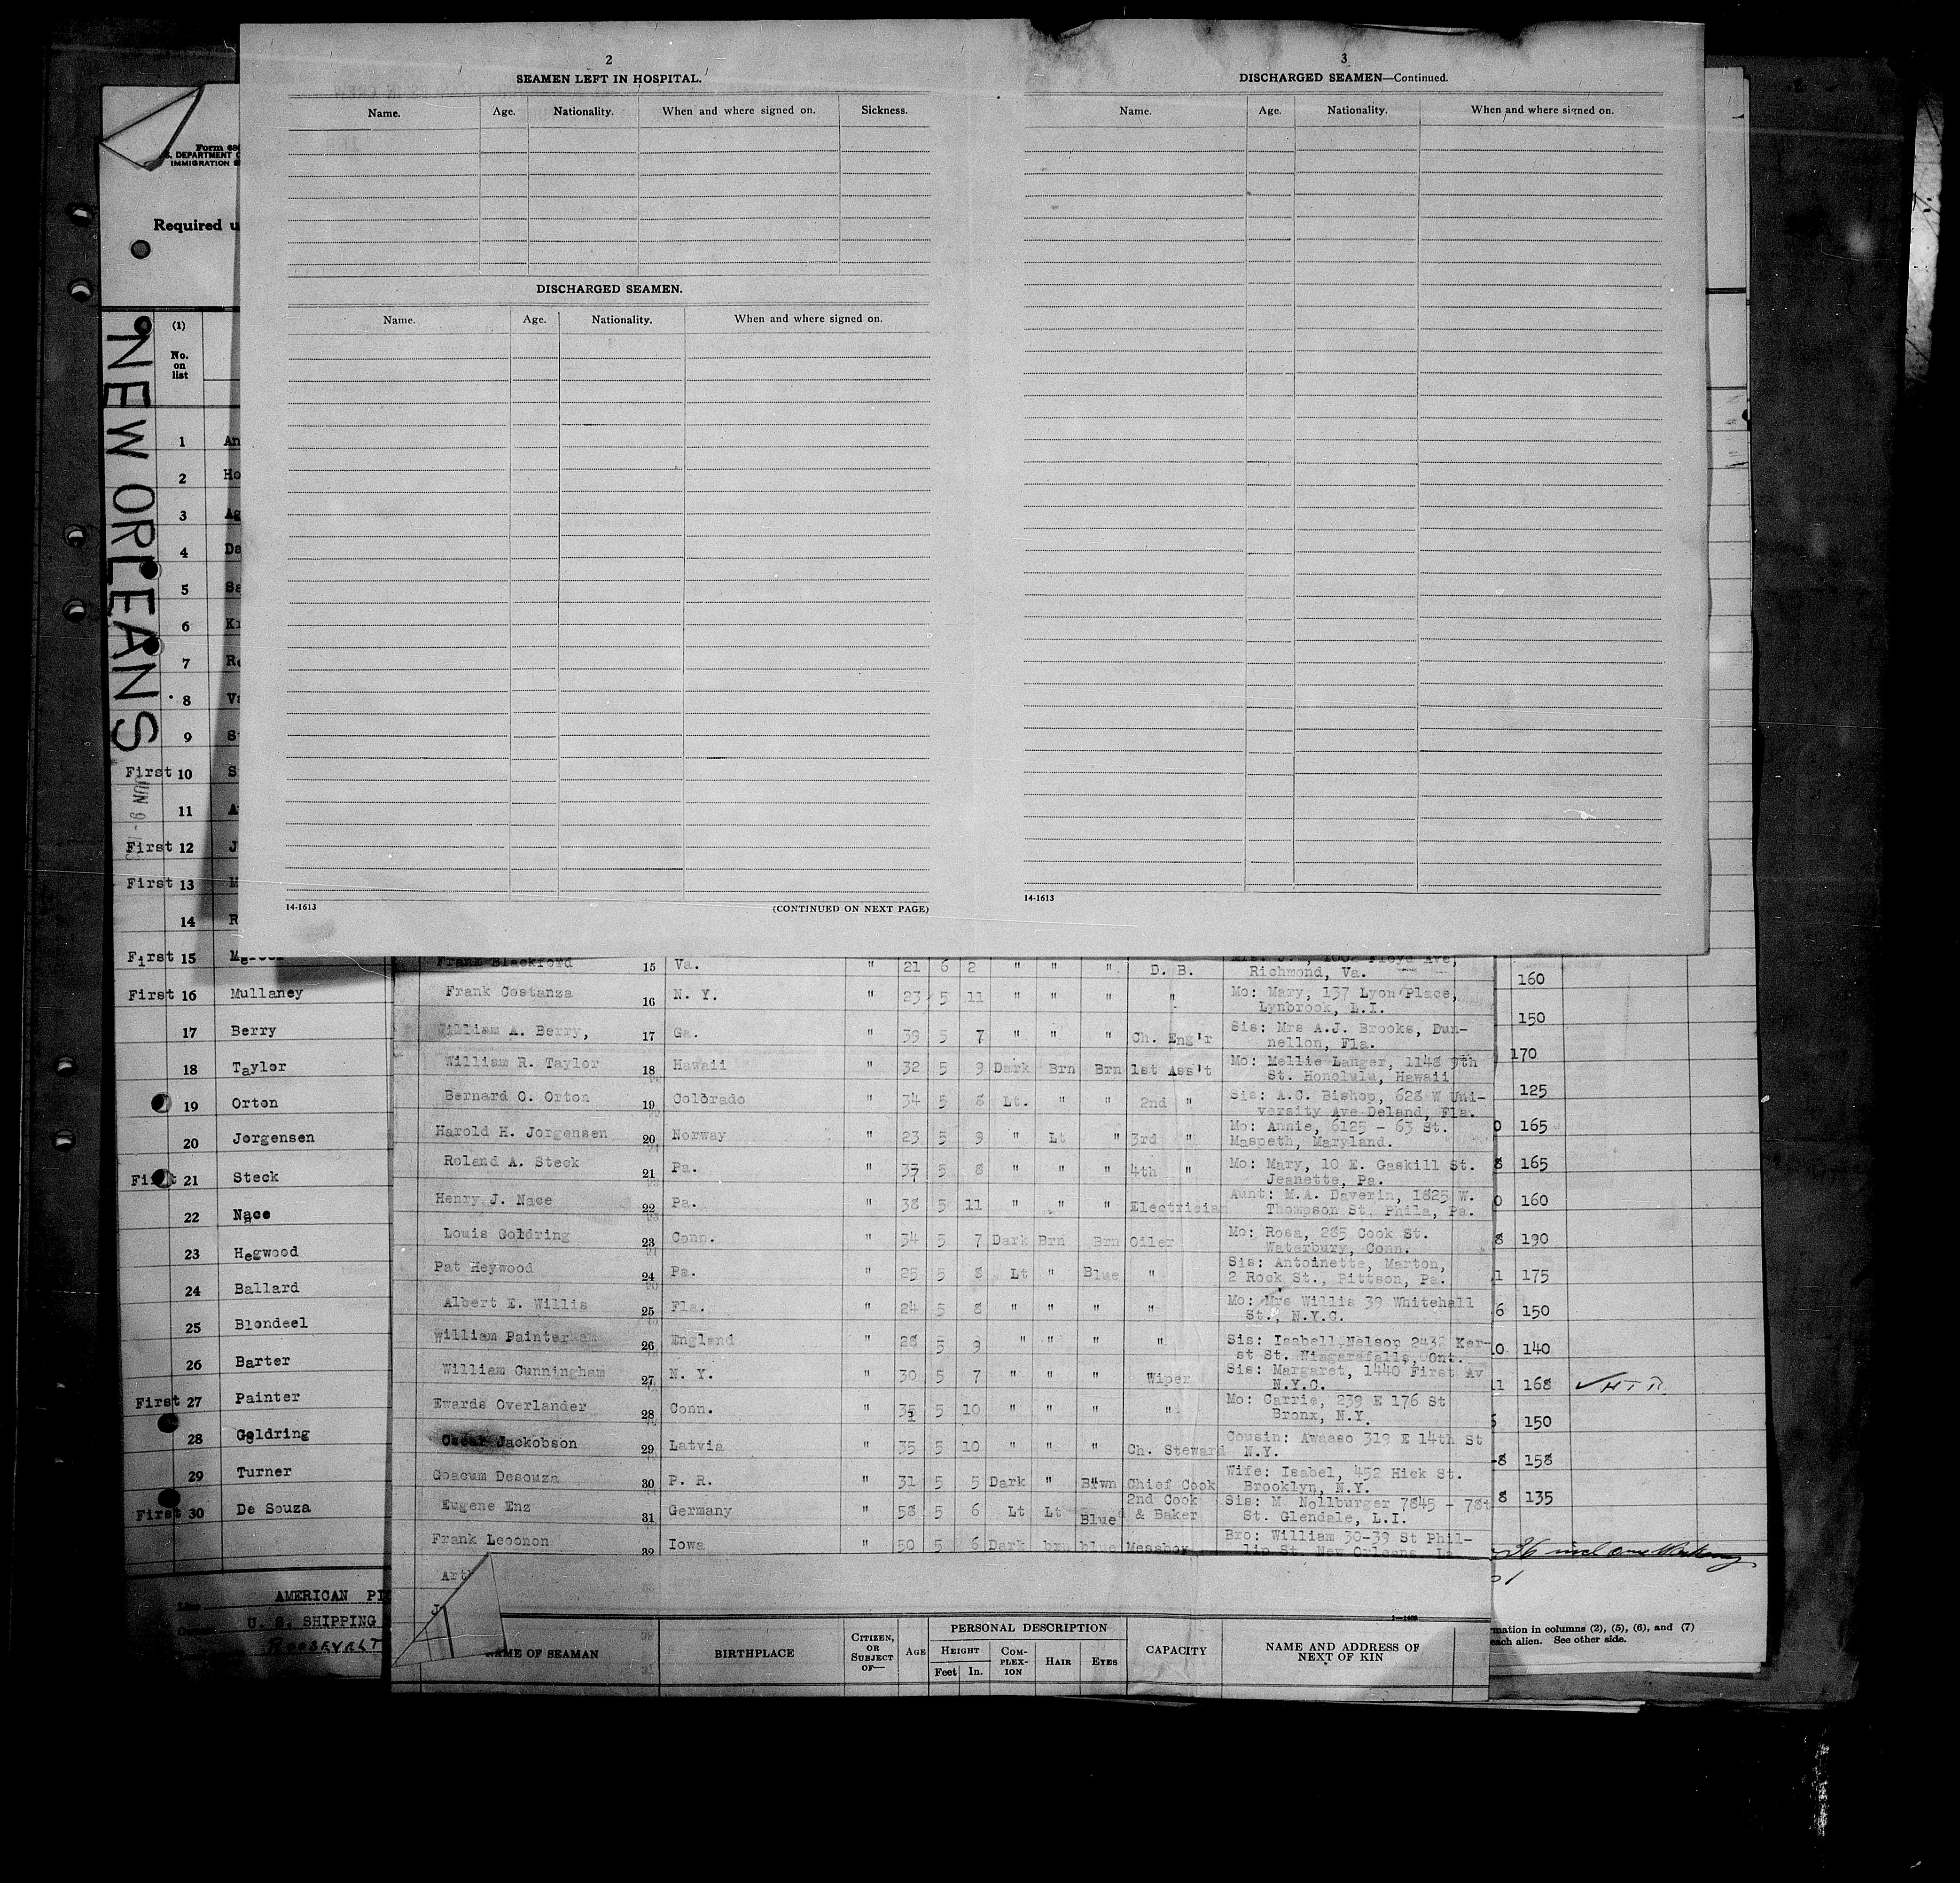 2
SEAMEN LEFT IN HOSPITAL.
Name. Age. Nationality. When and where signed on. Sickness.
DISCHARGED SEAMEN.
Name. Age. Nationality. When and where signed on.
14-1613 (CONTINUED ON NEXT PAGE)
3
DISCHARGED SEAMEN—Continued.
Name. Age. Nationality. When and where signed on.
14-1613
Required
(1)
No.
on
list
NEW ORLEANS
1
2
3
4
5
6
7
8
9
First 10
JUN 9
11
First 12
First 13
14
First 15
First 16 Mullaney
17 Berry
18 Taylor
19 Orton
20 Jorgensen
First 21 Steck
22 Nace
23 Hegwood
24 Ballard
25 Blondeel
26 Barter
First 27 Painter
28 Goldring
29 Turner
First 30 De Souza
AMERICAN
U. S. SHIPPING
ROOSEVELT
Frank Blackford 15 Va. " 21 6 2 " " " D. B.
Richmond, Va.
Frank Costanza 16 N. Y. " 23 5 11 " " " " Mo: Mary, 137 Lyon Place,
Lynbrook, L.I.
William A. Berry, 17 Ga. " 39 5 7 " " " Ch. Eng'r Sis: Mrs A.J. Brooks, Dun-
nellon, Fla.
William R. Taylor 18 Hawaii " 32 5 9 Dark Brn Brn 1st Ass't Mo: Mellie Langer, 1148 9th
St. Honolulu, Hawaii
Bernard C. Orton 19 Colorado " 34 5 8 Lt. " " 2nd " Sis: A.C. Bishop, 628 W Uni-
versity Ave Deland, Fla.
Harold H. Jorgensen 20 Norway " 23 5 9 " Lt " 3rd " Mo: Annie, 6125 - 63 St.
Maspeth, Maryland.
Roland A. Steck 21 Pa. " 37 5 8 " " " 4th " Mo: Mary, 10 E. Gaskill St.
Jeanette, Pa.
Henry J. Nace 22 Pa. " 38 5 11 " " " Electrician Aunt: M.A. Daverin, 1825 W.
Thompson St. Phila, Pa.
Louis Goldring 23 Conn. " 34 5 7 Dark Brn Brn Oiler Mo: Rosa, 285 Cook St.
Waterbury, Conn.
Pat Heywood 24 Pa. " 25 5 8 Lt " Blue " Sis: Antoinette, Marton,
2 Rock St., Pittson, Pa.
Albert E. Willis 25 Fla. " 24 5 8 " " " " Mo: Mrs Willis 39 Whitehall
St., N.Y.C.
William Painter 26 England " 28 5 9 " " " " Sis: Isabell Nelson 2438 Ker-
st St. Niagarafalls, Ont.
William Cunningham 27 N. Y. " 30 5 7 " " " Wiper Sis: Margaret, 1440 First Av
N.Y.C.
Ewards Overlander 28 Conn. " 5 10 " " " " Mo: Carrie, 239 E 176 St
Bronx, N.Y.
Oscar Jackobson 29 Latvia " 35 5 10 " " " Ch. Steward Cousin: Awaaso 319 E 14th St
N.Y.
Goacum Desouza 30 P. R. " 31 5 5 Dark " Chief Cook Wife: Isabel, 452 Hick St.
Brooklyn, N.Y.
Eugene Enz 31 Germany " 58 5 6 Lt Lt Blue 2nd Cook & Baker Sis: M. Nollburger 7845 - 78t
St. Glendale, L.I.
Frank Leoonon 32 Iowa " 50 5 6 Dark brn blue Messboy Bro: William 30-39 St Phil-
lip St. New Orleans
NAME OF SEAMAN BIRTHPLACE CITIZEN, OR SUBJECT OF— AGE PERSONAL DESCRIPTION
HEIGHT Feet In. COMPLEX-ION HAIR EYES CAPACITY NAME AND ADDRESS OF NEXT OF KIN
160
150
170
125
165
165
160
190
175
150
140
168
150
158
135
mation in columns (2), (5), (6), and (7)
each alien. See other side.